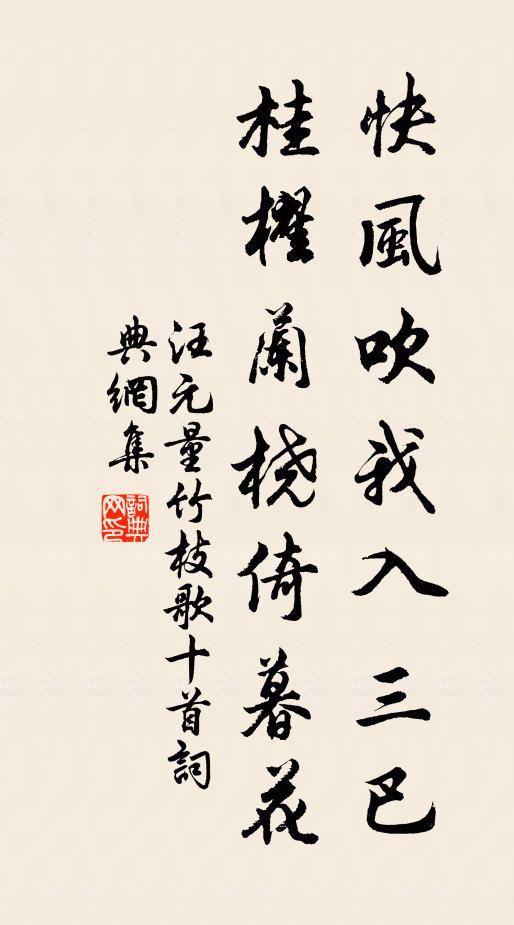 快風吹我入三巴
桂櫂蘭橈倚暮花
汪元量竹枝歌十首詞
典網集
詞典
网印